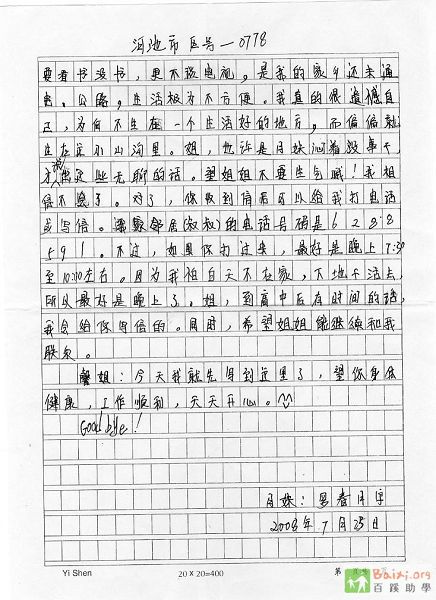 河池市区号—0778
要看书没书，更不谈电视，是我的家乡还未通
电、公路，生活极为不方便。我真的很遗憾自
己，为何不生在一个生活好的地方，而偏偏就
生在这小山沟里。姐，也许是月妹心
我 些无聊的话。望姐姐不要生气哦！我相
信不会了。对了，你收到信后可以给我打电话
或写信。邻居(叔叔)的电话号码是6288
591。不过，如果你打过来，最好是晚上7:30
至10:10左右。因为我怕白天不在家，下地干活去，
所以最好是晚上了。姐，到高中后有时间的话，
我会给你写信的。同时，希望姐姐能继续和我
联系。
馨姐：今天我就先写到这里了，望你身体
健康，工作顺利，天天开心。
Good bye!
月妹：
2008年7月25日
Yi Shen
20×20=400
第
Baixi.org
百蹊助學